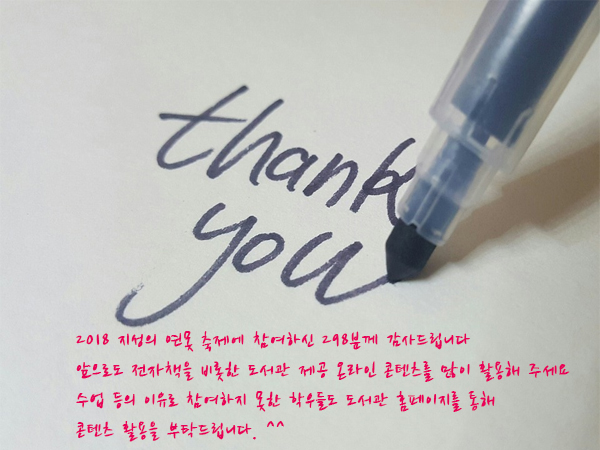 thank
you
2018 지성의 연못 축제에 참여하신 298분께 감사드립니다
앞으로도 전자책을 비롯한 도서관 제공 온라인 콘텐츠를 많이 활용해 주세요
수업 등의 이유로 참여하지 못한 학우들도 도서관 홈페이지를 통해
콘텐츠 활용을 부탁드립니다. ^^